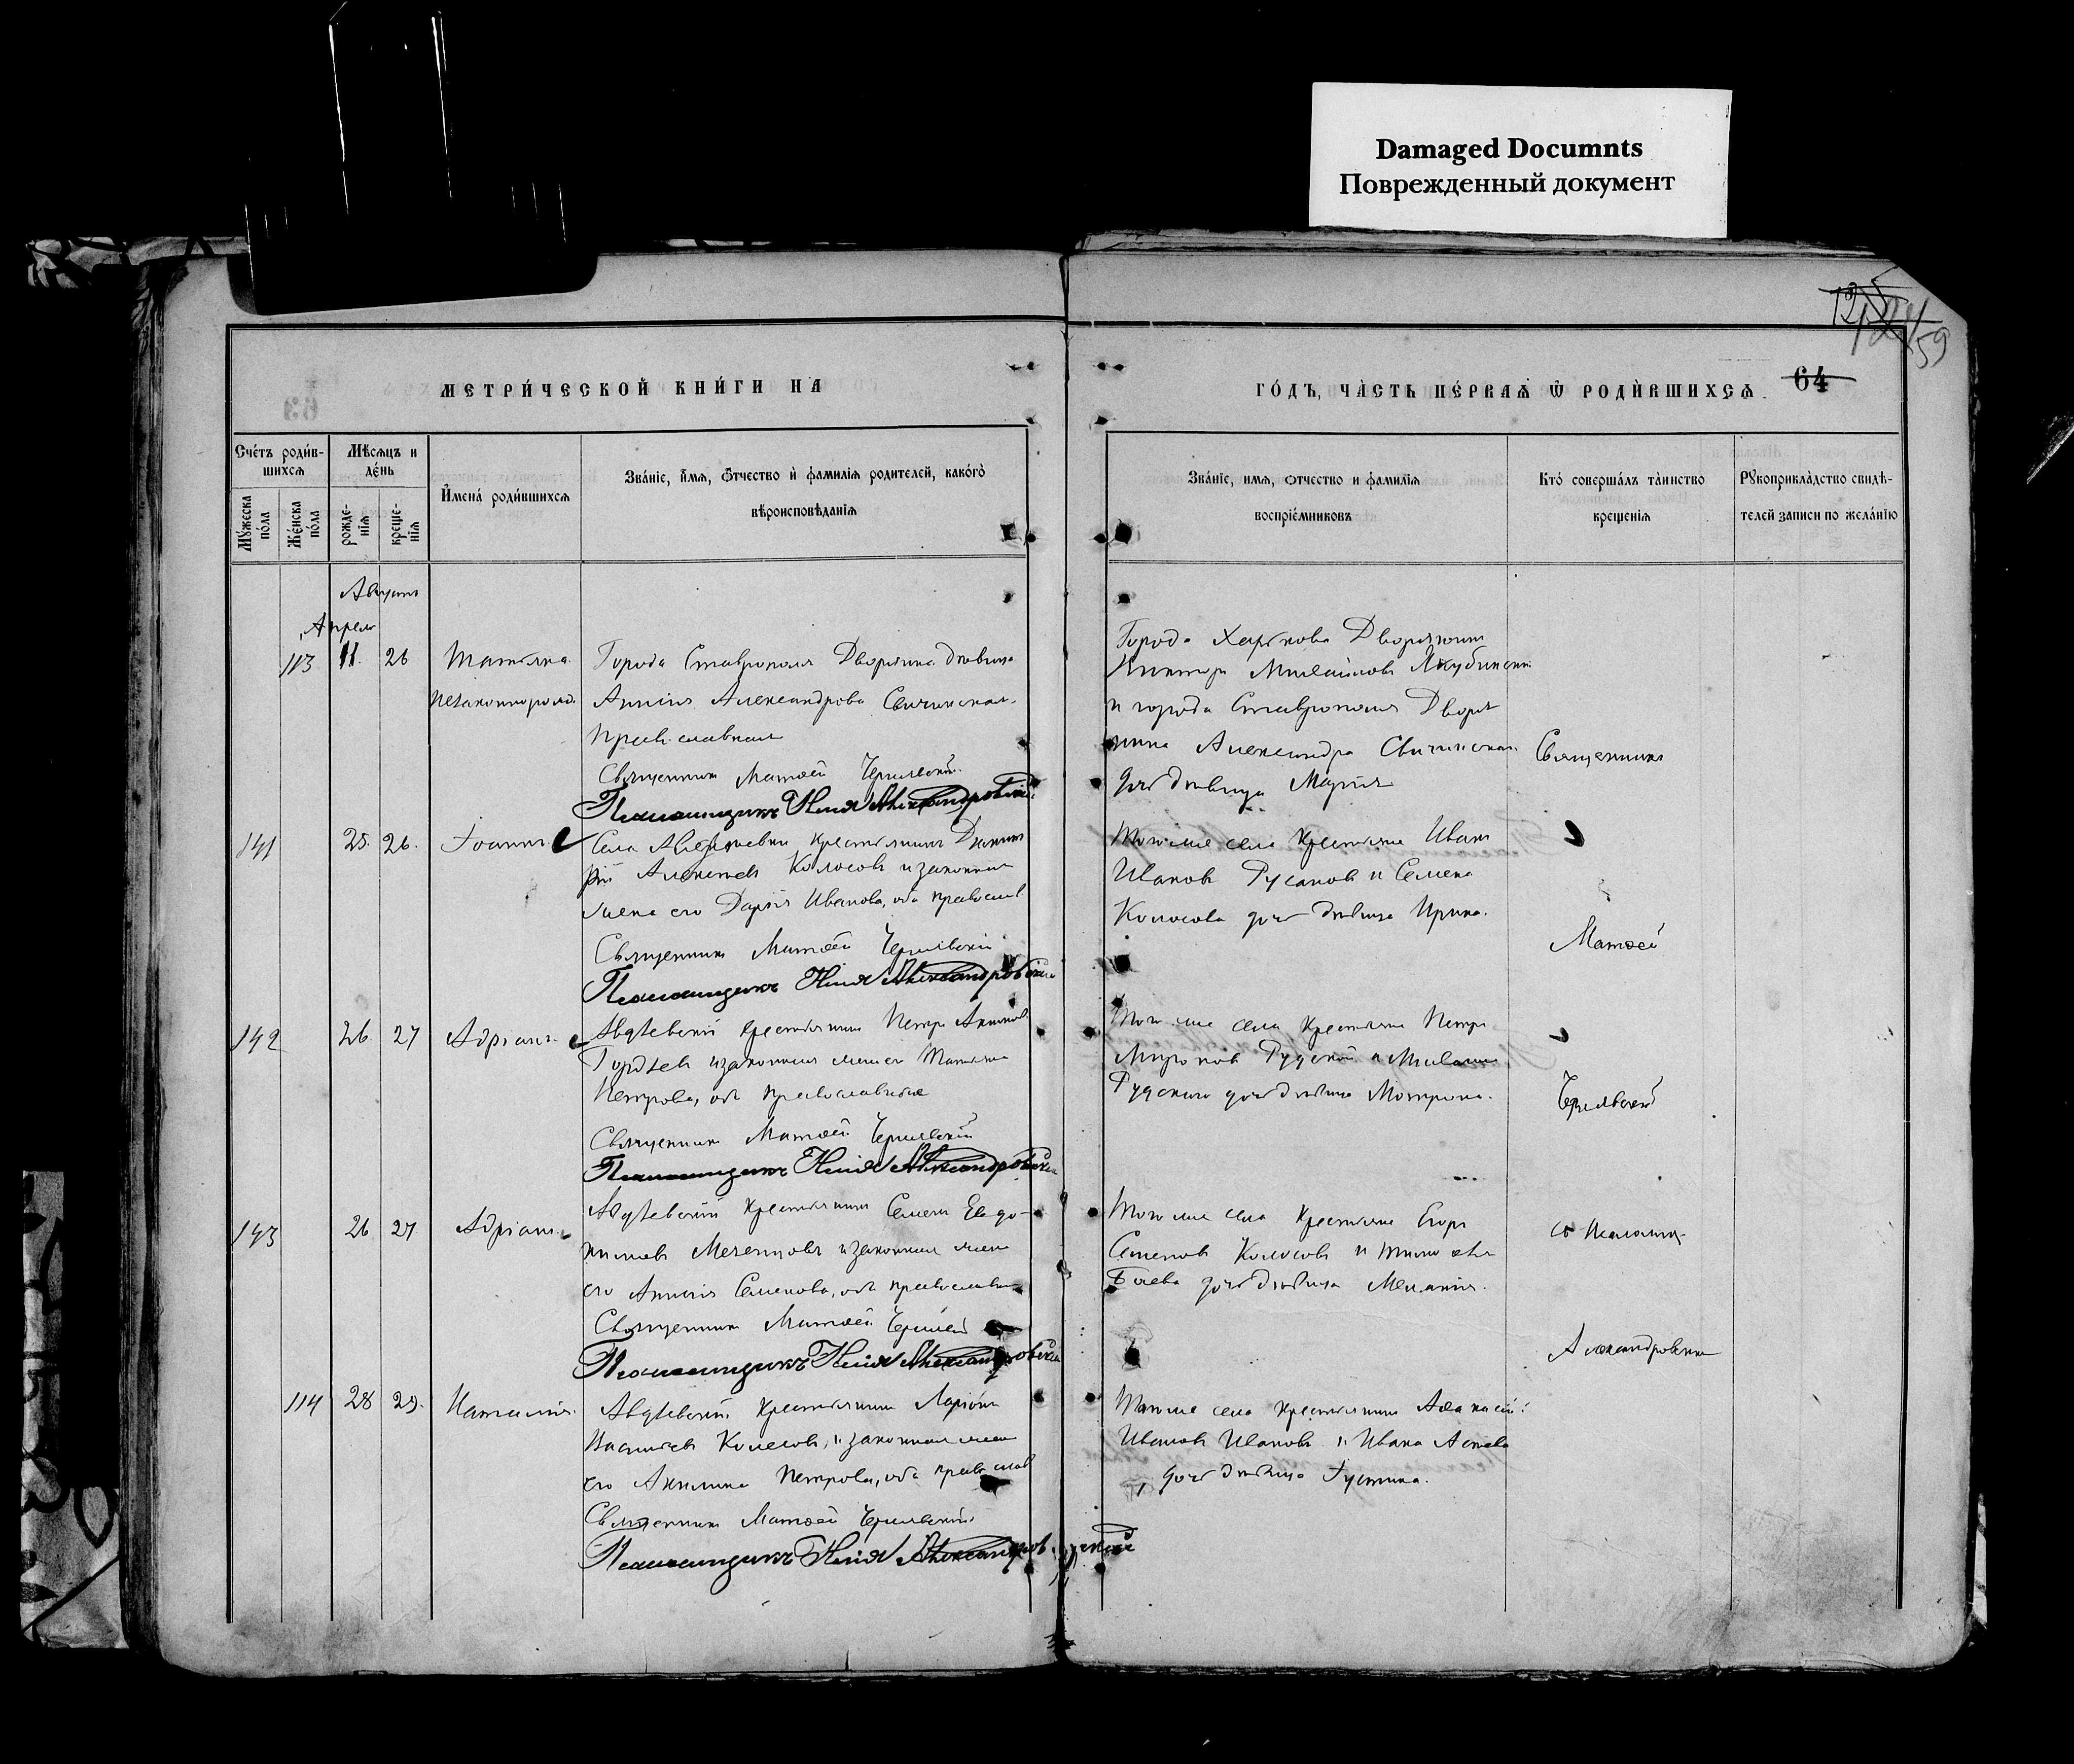 Damaged Documnts
Поврежденный документ
125
124
59
МЕТРИ́ЧЕСКОЙ КНИ́ГИ НА
ГО́ДЪ, ЧА̀СТЬ ПЕ́РВАѦ Ѡ҆ РОДИ́ВШИХСѦ
64
Сче́тъ роди́в-
шихсѧ
Мѣ́сѧцъ и
де́нь
Му́жеска
по́ла
Же́нска
по́ла
рожде-
нїѧ
креще-
нїѧ
И҆мена̀ роди́вшихсѧ
Зва́нїе, и҆́мѧ, ѻ҆́тчество и҆ фамилїѧ родителей, како́гѡ
вѣроисповѣданїѧ
Зва́нїе, имѧ, отчество и фамилїѧ
воспрїе́мниковъ
Кто́ соверша́лъ та̀инство
крещенїѧ
Рꙋкоприкла̀дство свидѣ-
телей записи по жела́нїю
Августъ
Апрель
113 11. 26 Татьяна
незаконнорожд.
Города Ставрополя Дворянка дѣвица
Александрова Свичинская
православная
Священникъ Матѳей Чернявскій
Псаломщикъ Илія Александровскій
Города Харькова Дворянинъ
Викторъ Михайловъ
и города Ставрополя Дворя
нина Александра Свичинскаго
дочь дѣвица Марія
Священникъ
141 25. 26. Іоаннъ
Села Авдѣевки крестьянинъ Димит
рій Алексѣевъ Колосовъ и законная
жена его Дарія Иванова, оба православ
Священникъ Матѳей Чернявскій
Псаломщикъ Илія Александровскій
Того же села крестьяне Иванъ
Ивановъ Русановъ и Семена
Колосова дочь дѣвица Ирина.
Матѳей
142 26 27 Адріанъ
Авдѣевскій крестьянинъ Петръ
Гордѣевъ и законная жена его Татьяна
Петрова, оба православные
Священникъ Матѳей Чернявскій
Псаломщикъ Илія Александровскій
Того же села крестьяне Петръ
Мироновъ Рудской и Михаила
Рудского дочь дѣвица Мотрона.
Чернявскій
143 26 27 Адріанъ
Авдѣевскій крестьянинъ Семенъ Евдо-
кимовъ и законная жена
его Семенова, оба православн
Священникъ Матѳей Черняв
Псаломщикъ Илія Александровскій
Того же села крестьяне Егоръ
Семеновъ Колосовъ и Тимоѳея
Боева дочь дѣвица Меланія.
съ Псаломщ-
Александровскимъ
114 28 29. Наталія.
Авдѣевскій крестьянинъ Ларіонъ
Васильевъ Колосовъ, и законная жена
его Акилина Петрова, оба православ
Священникъ Матѳей Чернявскій
Псаломщикъ Илія Александровскій
Того же села крестьянинъ Аѳанасій
Ивановъ Ивановъ и Ивана
дочь дѣвица Іустина.